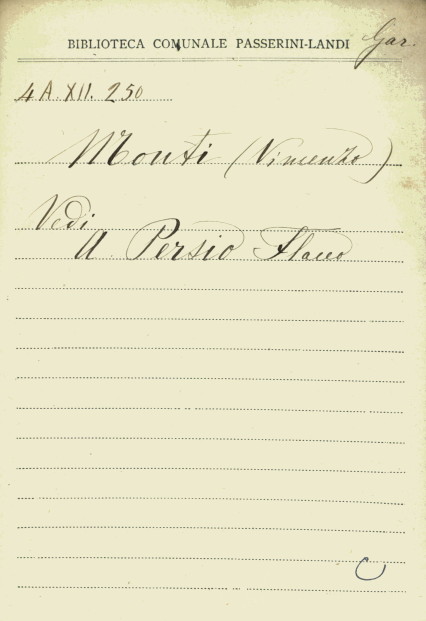 BIBLIOTECA COMUNALE PASSERINI-LANDI Gar.
4A. XII. 250
Monti (Vincenzo)
Vedi
A. Persio Flacco
C